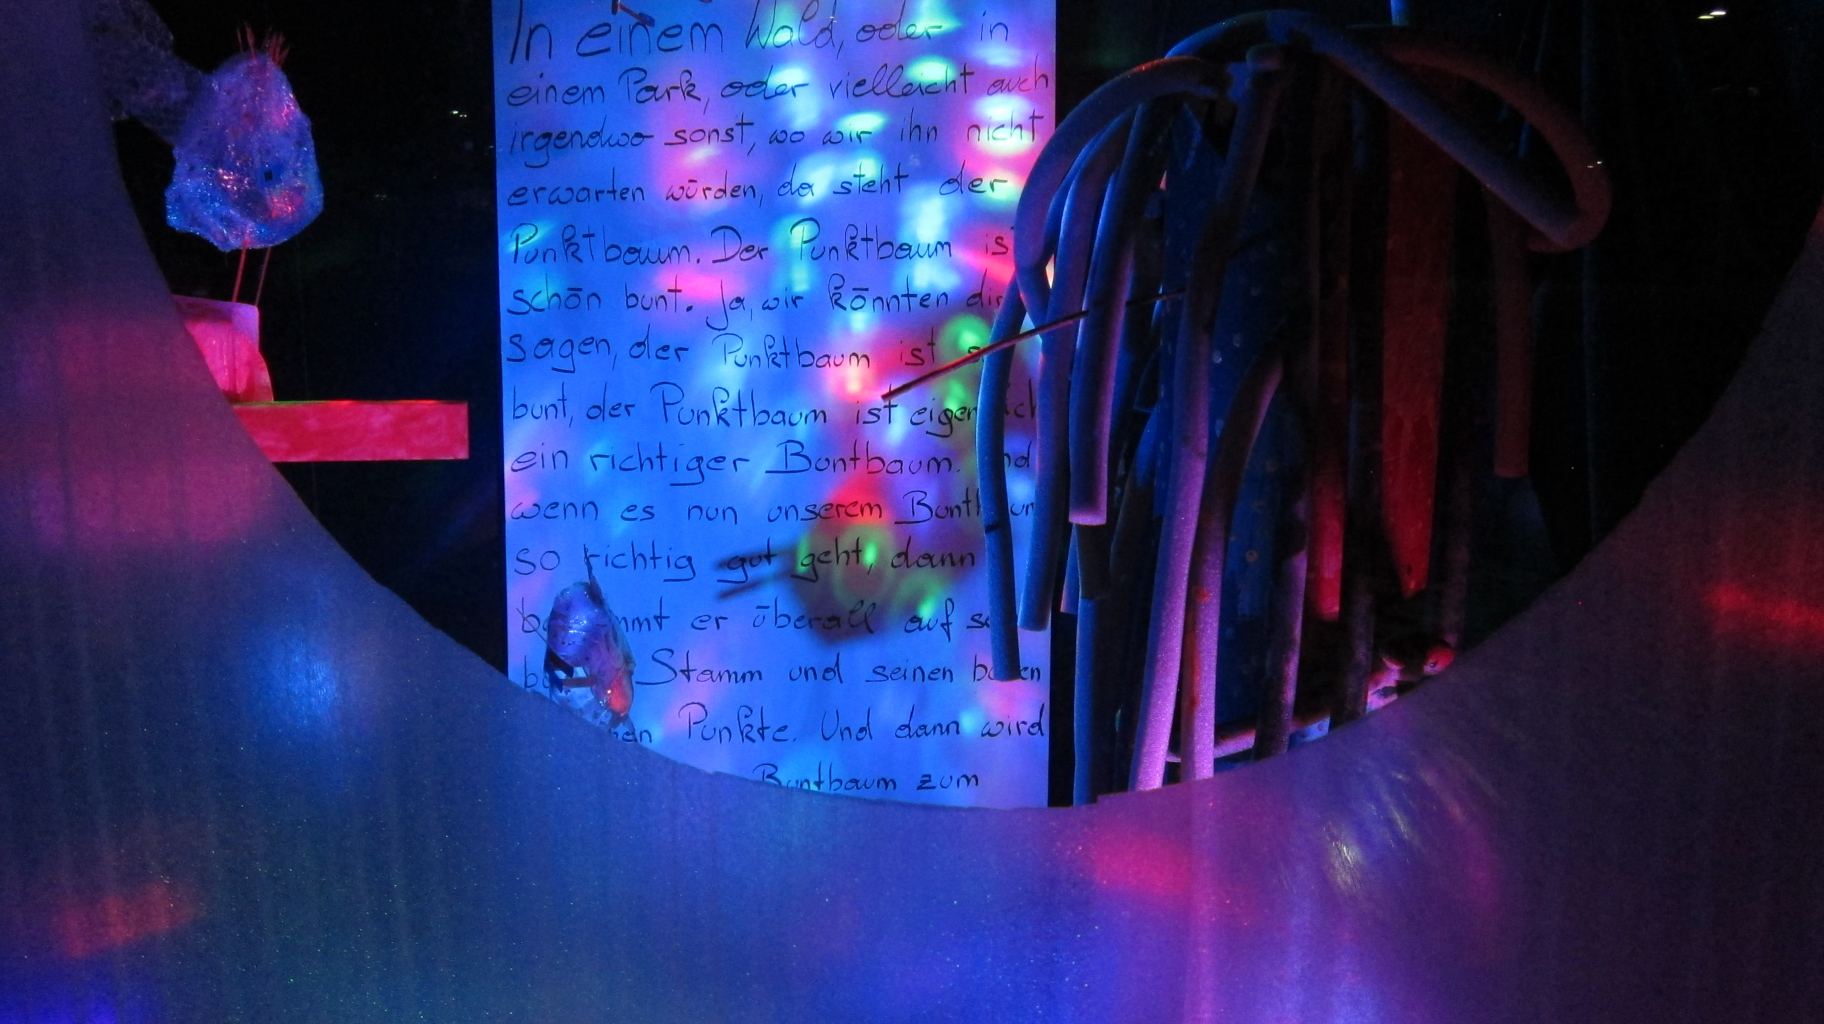 In einem Wald, oder in
einem Park, oder vielleicht auch
irgendwo sonst, wo wir ihn nicht
erwarten würden, da steht der
Punktbaum. Der Punktbaum ist
schön bunt. Ja, wir könnten dir
sagen, der Punktbaum ist so
bunt, der Punktbaum ist eigentlich
ein richtiger Buntbaum. Und
wenn es nun unserem Buntbaum
so richtig gut geht, dann
bekommt er überall auf
Stamm und seinen bunten
Punkte. Und dann wird
Buntbaum zum